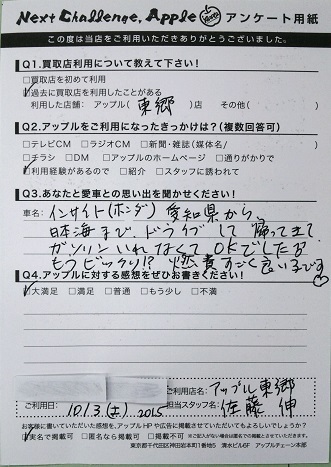 Next Challenge, Apple アンケート用紙
この度は当店をご利用いただきありがとうございました。
Q1.買取店利用について教えて下さい!
□買取店を初めて利用
☑過去に買取店を利用したことがある
利用した店舗: アップル(東郷)店 その他( )
Q2.アップルをご利用になったきっかけは?(複数回答可)
□テレビCM □ラジオCM □新聞・雑誌(媒体名/ )
□チラシ □DM □アップルのホームページ □通りがかりで
☑利用経験があるので □紹介 □スタッフに誘われて
Q3.あなたと愛車との思い出を聞かせください!
車名: インサイト(ホンダ) 愛知県から、
日本海まで、ドライブして帰ってきて
ガソリンいれなくてOKでした
もうビックリ!? 燃費すごく良い子です
Q4.アップルに対する感想をぜひお書きください!
☑大満足 □満足 □普通 □もう少し □不満
ご利用店名:アップル東郷
ご利用日: 10/3(土) 2015 担当スタッフ名:佐藤 伸
お客様に書いていただいた感想を、アップルHPや広告に掲載させていただいてもよろしいでしょうか?
☑実名で掲載可 □匿名なら掲載可 □掲載不可 ※ご記入がない場合は匿名での掲載とさせていただきます。
東京都千代田区神田岩本町1番地5 清水ビル6F アップルチェーン本部